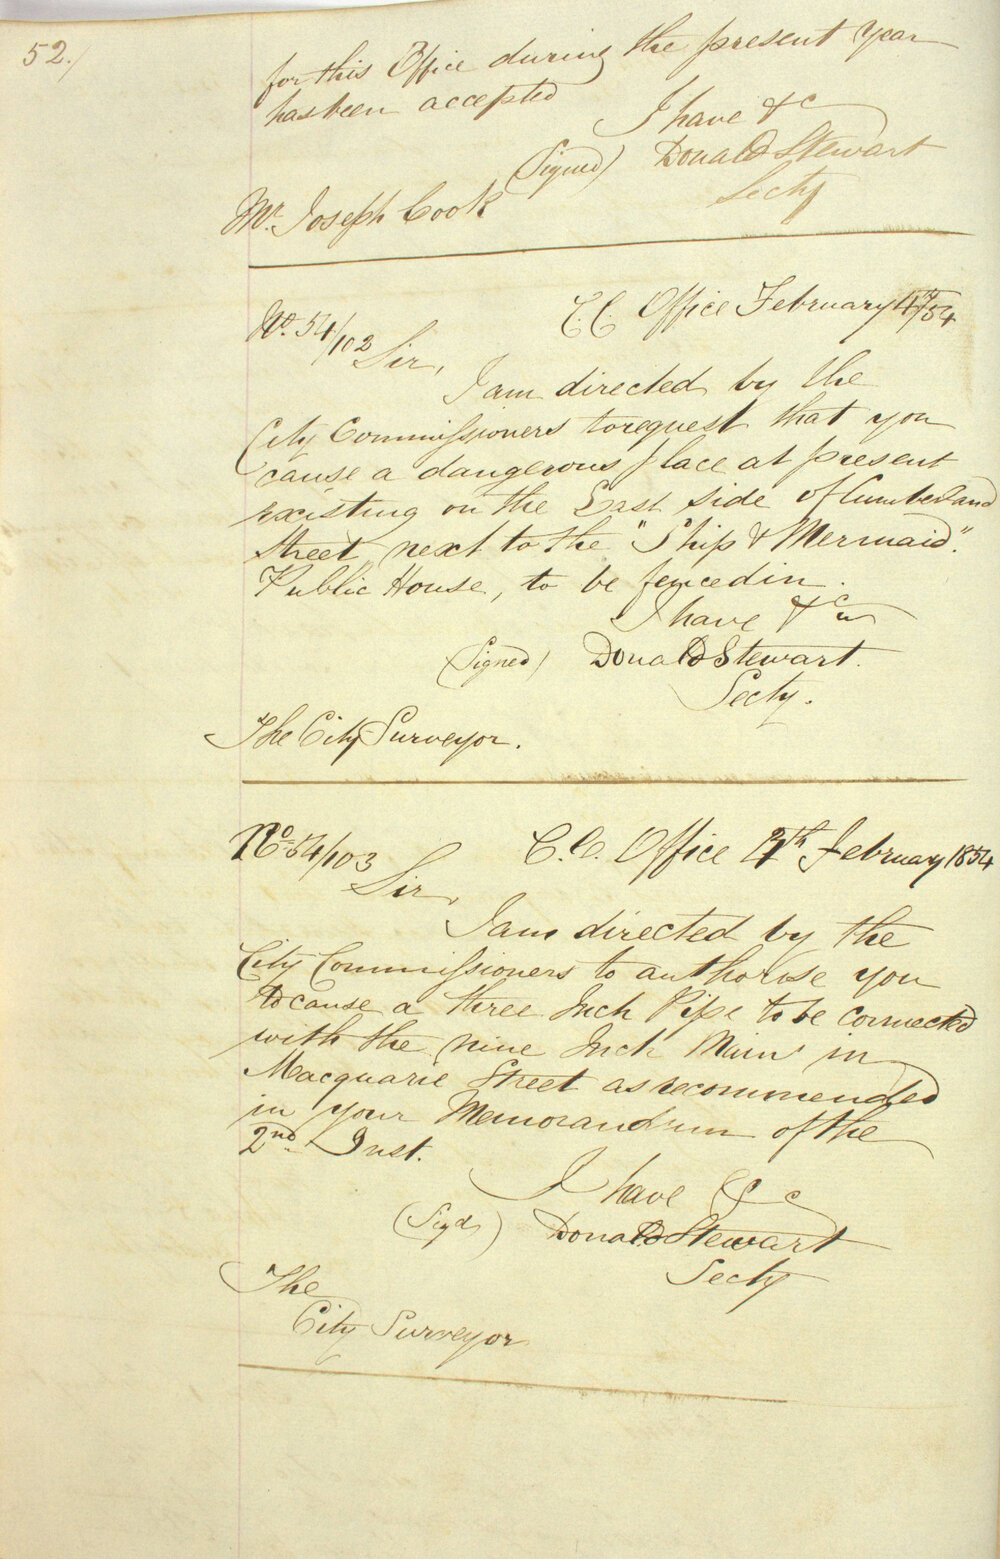 52./
for this Office during the present Year
has been accepted
I have &c
(Signed) Donald Stewart
Secty
Mr. Joseph Cook
No. 54/102 C.C. Office February 4th/54
Sir,
I am directed by the
City Commissioners to request that you
cause a dangerous place at present
existing on the East side of Cumberland
Street next to the "Ship & Mermaid".
Public House, to be fenced in.
I have &c
(Signed) Donald Stewart.
Secty.
The City Surveyor.
No. 54/103 C.C. Office 4th February 1854
Sir,
I am directed by the
City Commissioners to authorise you
to cause a three Inch Pipe to be connected
with the nine Inch Main in
Macquarie Street as recommended
in your Memorandum of the
2nd Inst.
I have &c
(Sigd) Donald Stewart
Secty
The
City Surveyor